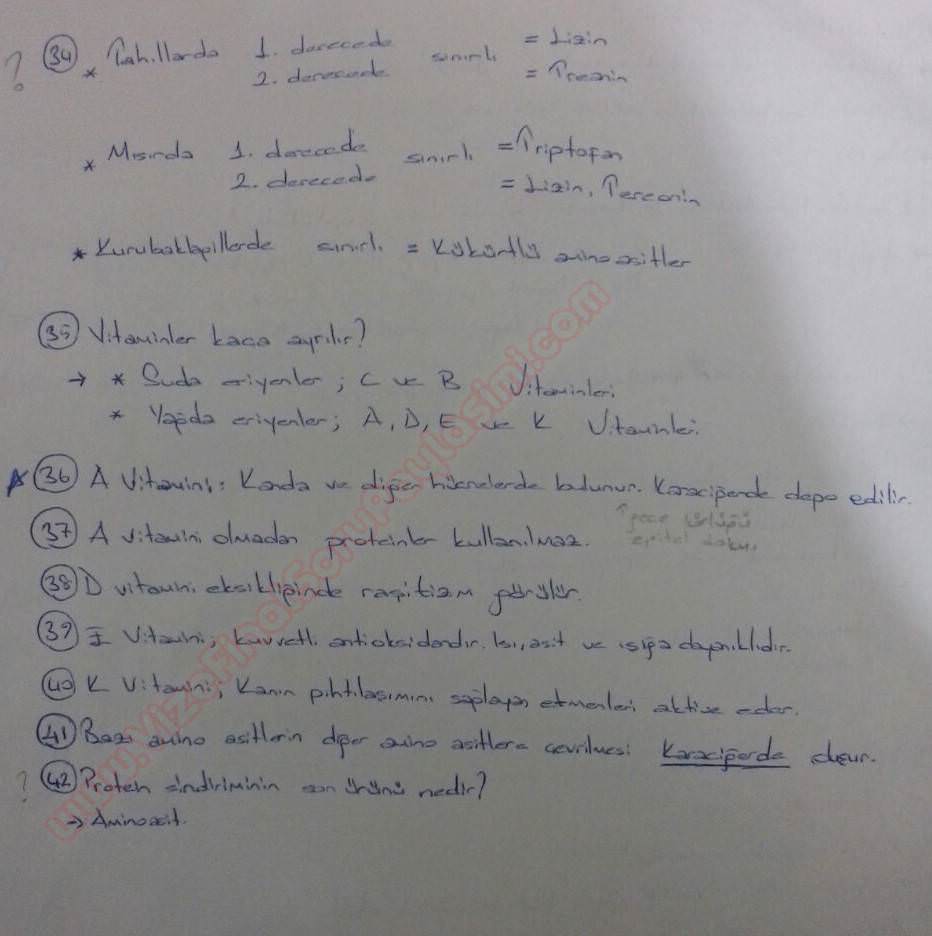 ? 34 * Tahıllarda 1. derecede sınırlı = Lizin
2. derecede = Treonin
* Mısırda 1. derecede sınırlı = Triptofan
2. derecede = Lizin, Tereonin
* Kurubaklagillerde sınırlı = Kükürtlü amino asitler
35 Vitaminler kaça ayrılır?
→ * Suda eriyenler; C ve B Vitaminleri
* Yağda eriyenler; A, D, E ve K Vitaminleri
36 A Vitamini: Kanda ve diğer hücrelerde bulunur. Karaciğerde depo edilir.
↑ gece
37 A vitamini olmadan proteinler kullanılmaz.
epitel doku
38 D vitamini eksikliğinde raşitizm görülür.
39 E Vitamini; kuvvetli antioksidandır. Isı, asit ve ışığa dayanıklıdır.
40 K Vitamini; Kanın pıhtılaşımını sağlayan etmenleri aktive eder.
41 Bazı amino asitlerin diğer amino asitlere çevrilmesi Karaciğerde oluşur.
? 42 Protein sindiriminin son ürünü nedir?
→ Aminoasit.
www.VizeFinalSoruPaylasimi.com